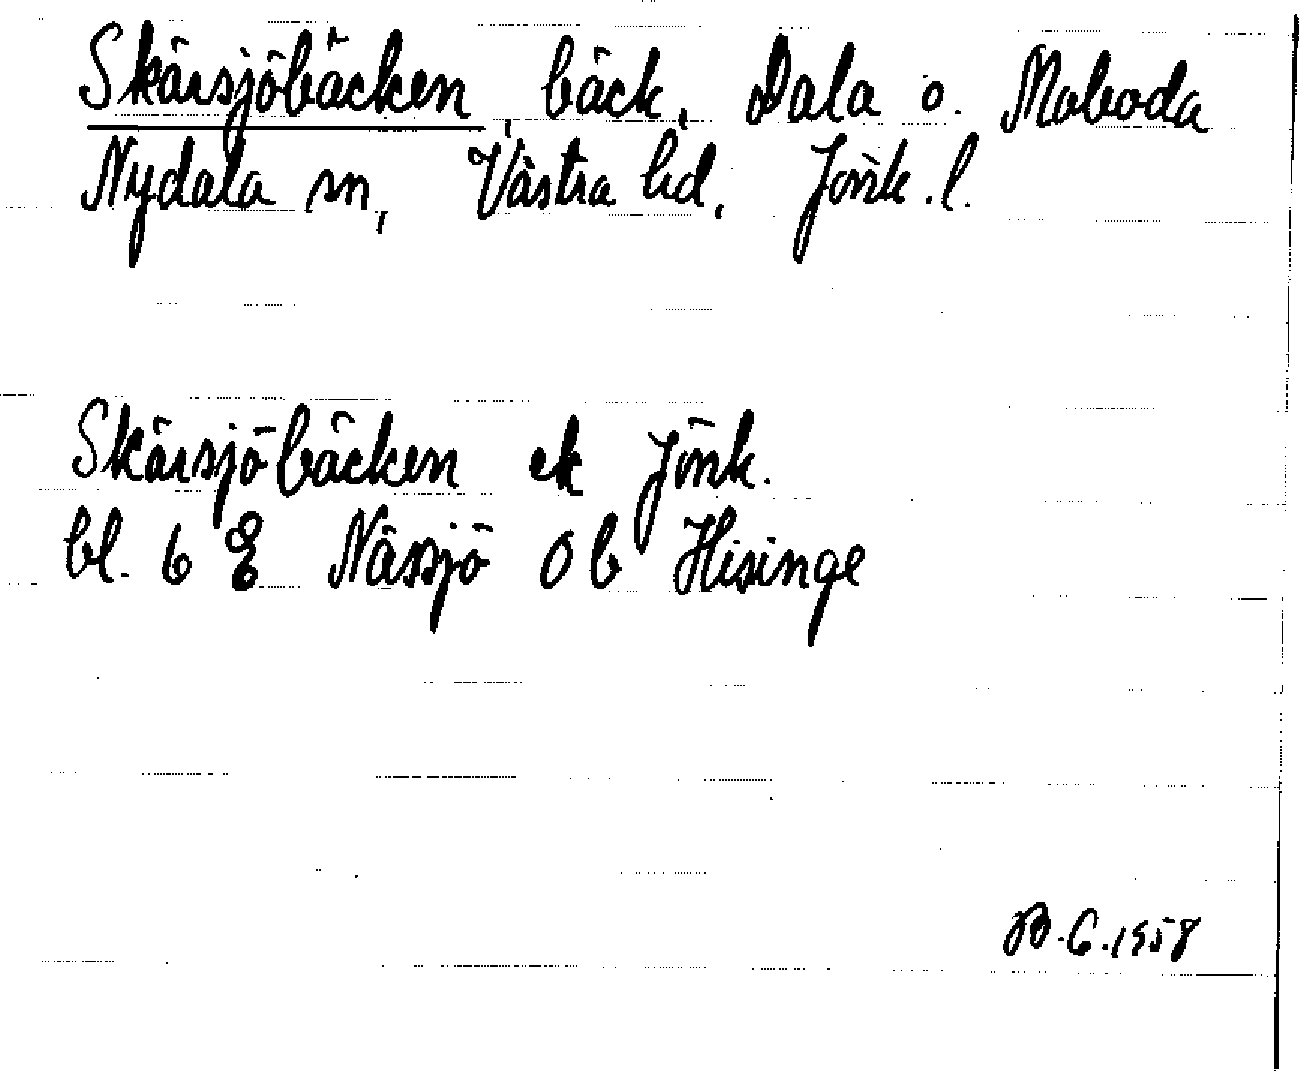 Skärsjöbäcken, bäck, Dala o. Moboda
Nydala sn, Västra hd, Jönk. l.
Skärsjöbäcken ek Jönk.
bl. 6 E Nässjö 0 b Hisinge
B.G. 1958